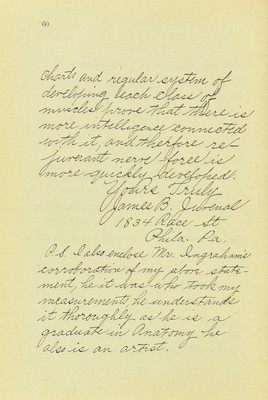 60
charts and regular system of
developing each class of
muscles prove that there is
more intelligence connected
with it, and therfore re-
juverant nerve force is
more quickly developed.
Yours Truly
James B. Juvenal
1834 Race St
Phila. Pa.
P.S. I also enclose Mr. Ingraham's
corroboration of my above state-
ment, he it was who took my
measurements, he understands
it thoroughly as he is a
graduate in Anatomy he
also is an artist.